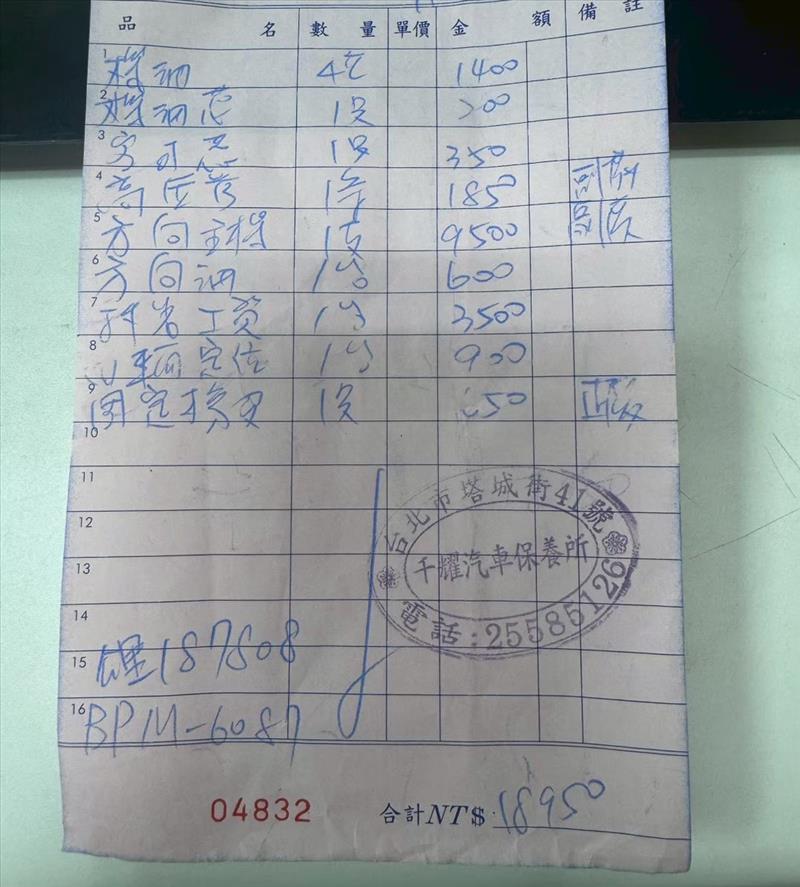 品名 數量 單價 金額 備註
1 機油 4瓦 1400
2 機油芯 1只 200
3 1只 350
4 185
5 方向主機 1支 9500
6 方向油 1台 600
7 工資 1台 3500
8 四輪定位 1台 900
9 固定橡皮 1只 50
10
11
12
13
14
15 187808
16 BPM-6087
台北市塔城街41號
千耀汽車保養所
電話:25585126
04832 合計NT$ 18950